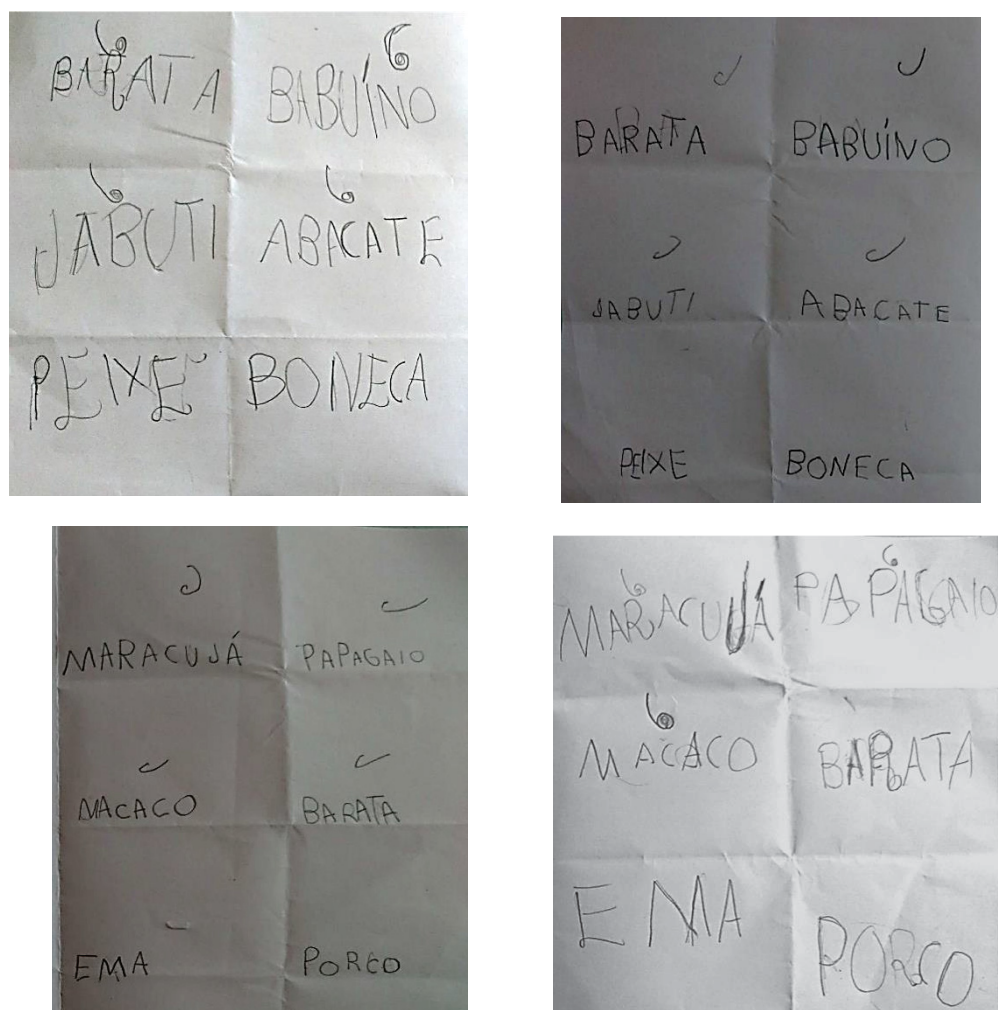 BARATA BABUÍNO
JABUTI ABACATE
PEIXE BONECA
BARATA BABUÍNO
JABUTI ABACATE
PEIXE BONECA
MARACUJÁ PAPAGAIO
MACACO BARATA
EMA PORCO
MARACUJÁ PAPAGAIO
MACACO BARATA
EMA PORCO